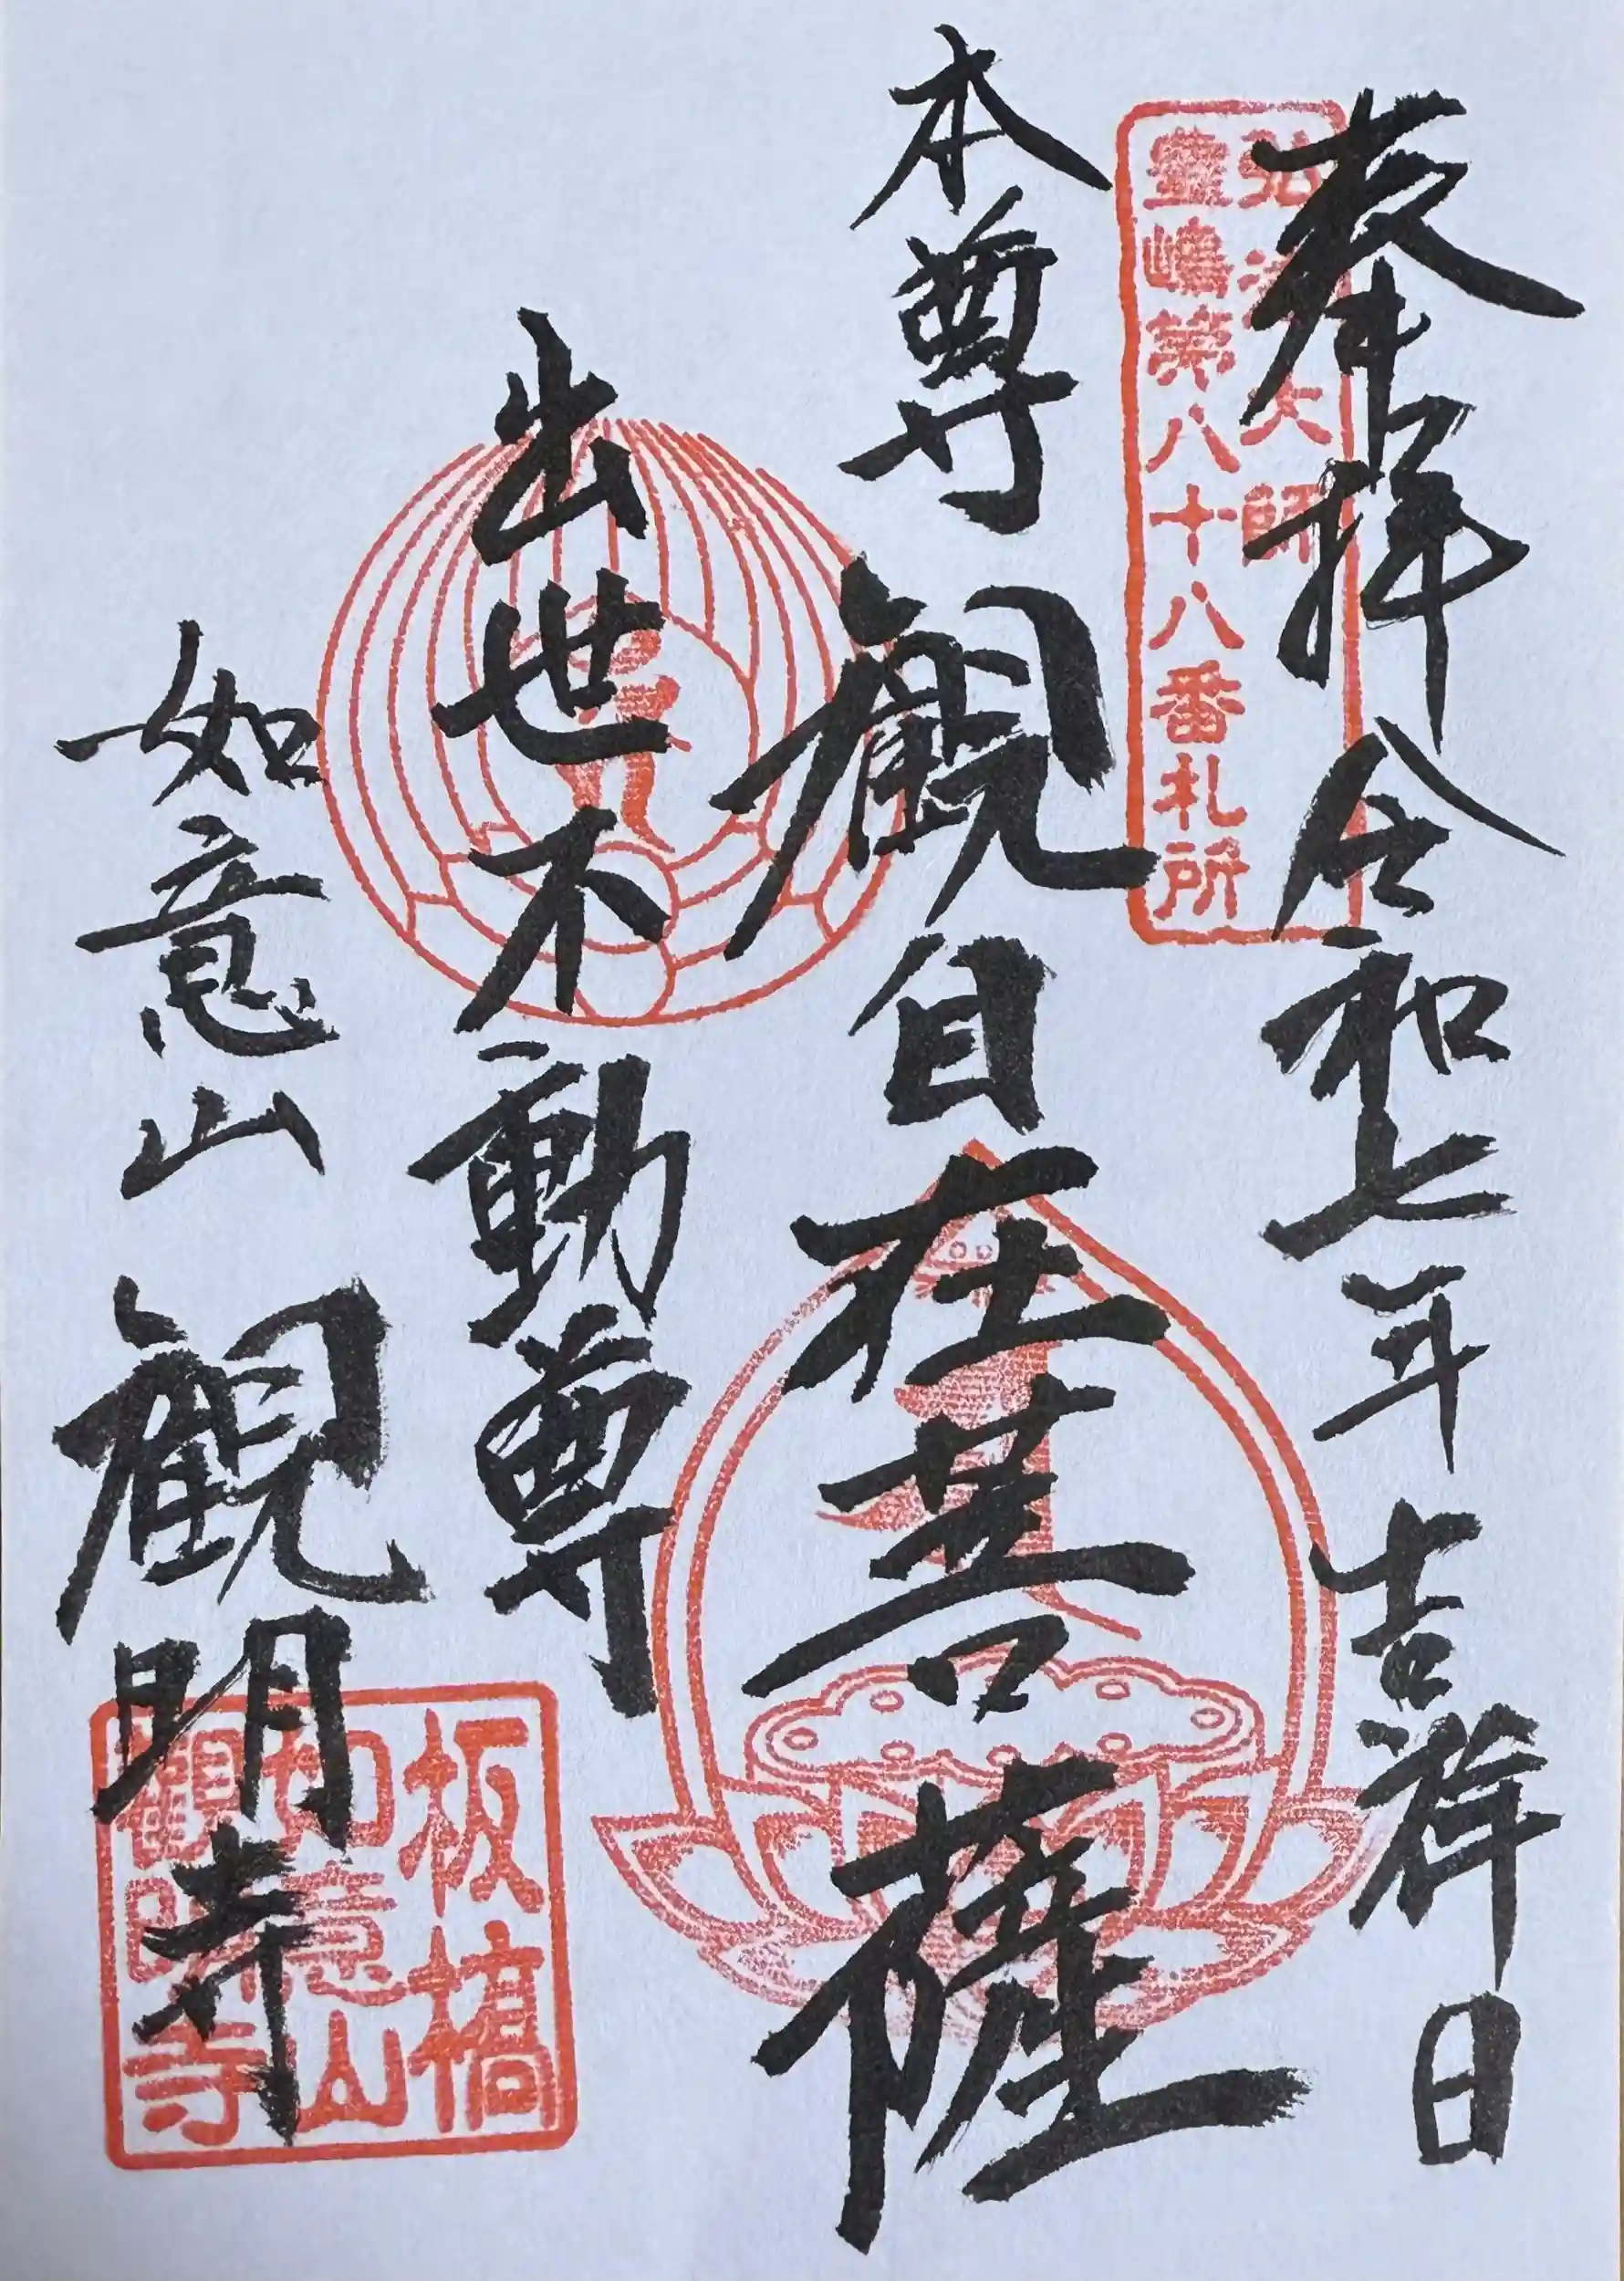 奉拝 令和七年 吉祥日
弘法大師
霊場第八十八番札所
本尊 観自在菩薩
出世不動尊
如意山 観明寺
板橋
如意山
観明寺